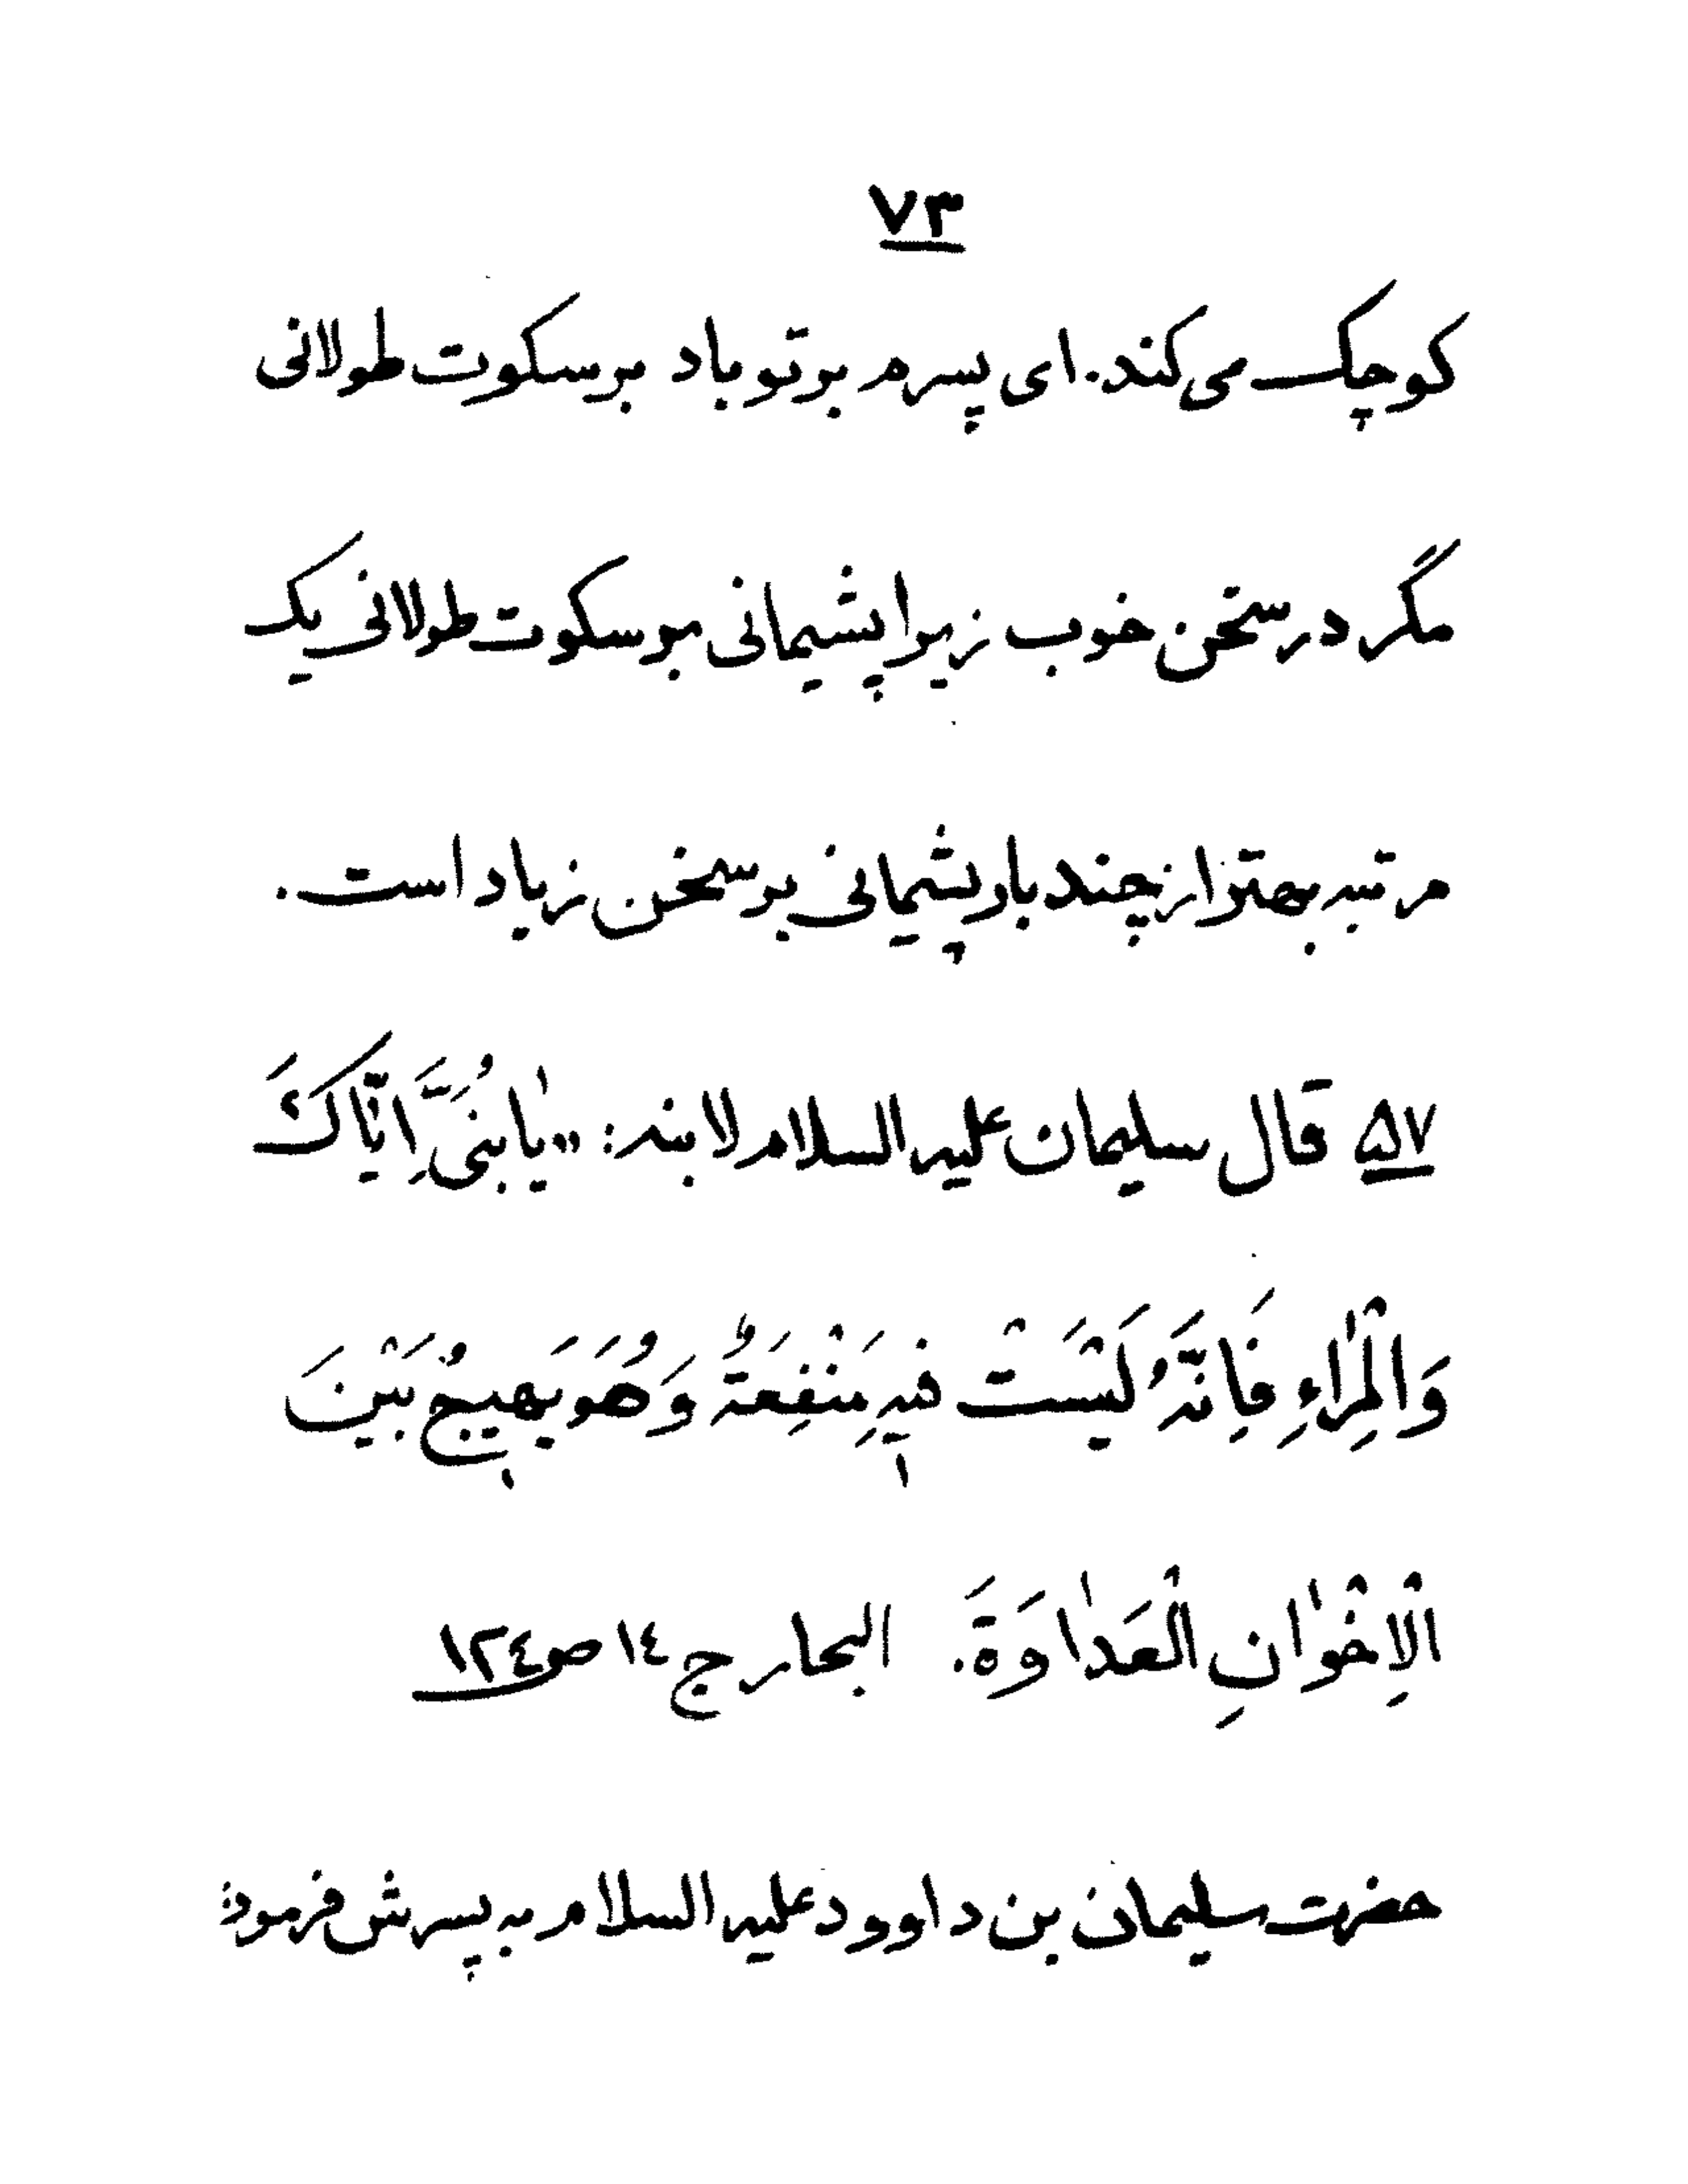 ۷۳
کوچک می‌کند. ای پسرم بر تو باد بر سکوت طولانی
مگر در سخن خوب زیرا پشیمانی بر سکوت طولانی یک
مرتبه بهتر از چند بار پشیمانی بر سخن زیاد است.
۵۷ قال سلیمان علیه السلام لابنه: «یٰا بُنَیَّ اِیّٰاکَ
وَالْمِرٰاءِ فَاِنَّهُ لَیْسَتْ فیهِ مَنْفِعَةٌ وَهُوَ یَهیجُ بَیْنَ
الْاِخْوٰانِ الْعَدٰاوَةَ. البحار ج ١٤ ص ١٣٤
حضرت سلیمان بن داوود علیه السلام به پسرش فرمود: